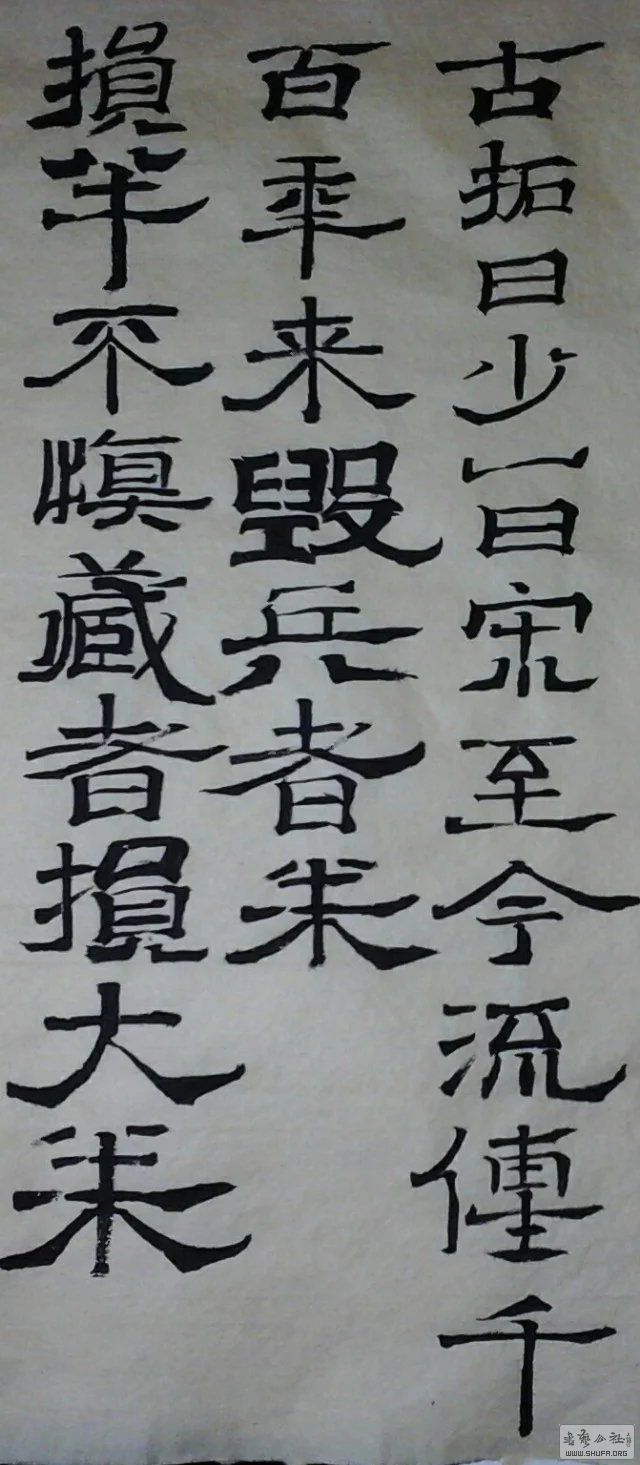 古拓日少一日宋至今流傳千
百年来毀兵者
損半不慎藏者損大
WWW.SHUFA.ORG